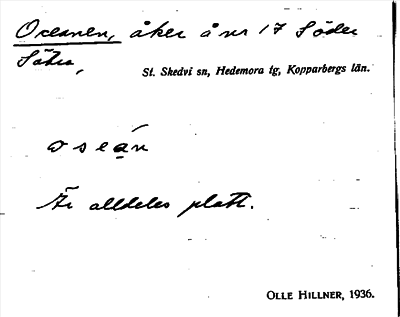 Oceanen, åker å nr 17 Söder
Sätra,
St. Skedvi sn, Hedemora tg, Kopparbergs län.
oseạ́n
Är alldeles platt.
OLLE HILLNER, 1936.